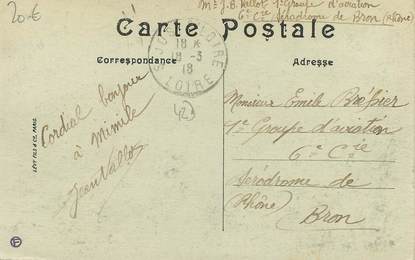 20€
Mr J.B. Vallot 1er Groupe d'aviation
6e Cie Aérodrome de Bron (Rhône)
Carte Postale
Correspondance
Adresse
18 *
18 -3
18
LOIRE
42
Cordial bonjour
à Mimile
Jean Vallot
Monsieur Emile
1er Groupe d'aviation
6e Cie
Aérodrome de
(Rhône)
Bron
LÉVY FILS & Cie, PARIS